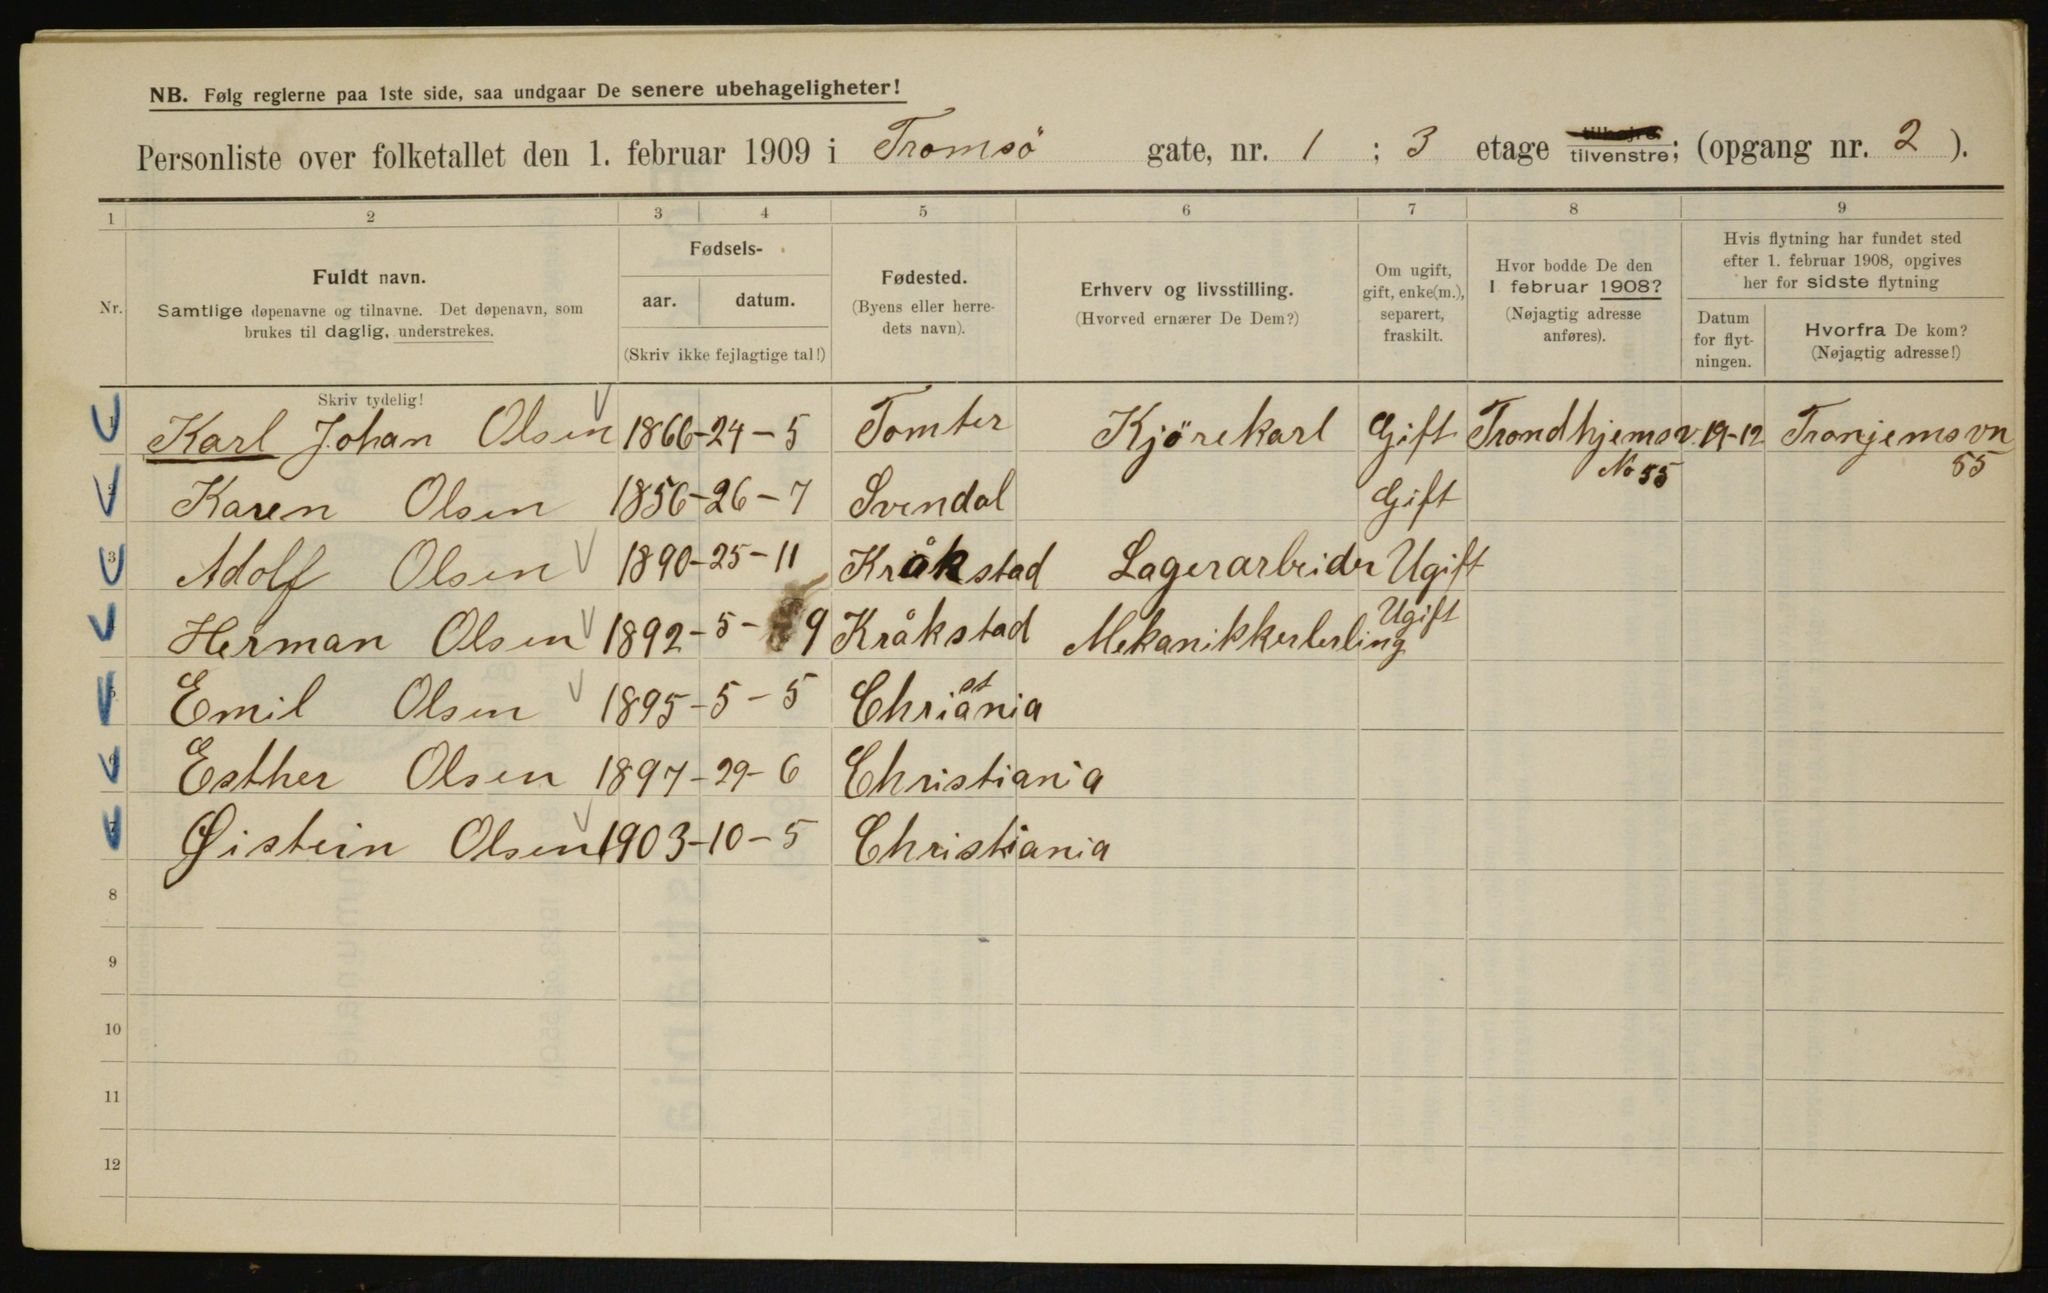 NB. Følg reglerne paa 1ste side, saa undgaar De senere ubehageligheter!
Personliste over folketallet den 1. februar 1909 i Tromsö gate, nr. 1 ; 3 etage tilhøjre tilvenstre; (opgang nr. 2 ).
1 2 3 4 5 6 7 8 9
Nr.
Fuldt navn.
Samtlige døpenavne og tilnavne. Det døpenavn, som
brukes til daglig, understrekes.
Fødsels-
aar. datum.
(Skriv ikke fejlagtige tal!)
Fødested.
(Byens eller herre-
dets navn).
Erhverv og livsstilling.
(Hvorved ernærer De Dem?)
Om ugift,
gift, enke(m.),
separert,
fraskilt.
Hvor bodde De den
1 februar 1908?
(Nøjagtig adresse
anføres).
Hvis flytning har fundet sted
efter 1. februar 1908, opgives
her for sidste flytning
Datum
for flyt-
ningen.
Hvorfra De kom?
(Nøjagtig adresse!)
Skriv tydelig!
1 Karl Johan Olsen 1866-24-5 Tomter Kjörekarl Gift Trondhjemsv 19-12 Tronjemsvn
No 55 55
2 Karen Olsen 1856-26-7 Svendal Gift
3 Adolf Olsen 1890-25-11 Kråkstad Lagerarbeider Ugift
Herman Olsen 1892-5-9 Kråkstad Mekanikkerlerling Ugift
5 Emil Olsen 1895-5-5 Christiania
6 Esther Olsen 1897-29-6 Christiania
7 Øistein Olsen 1903-10-5 Christiania
8
9
10
11
12